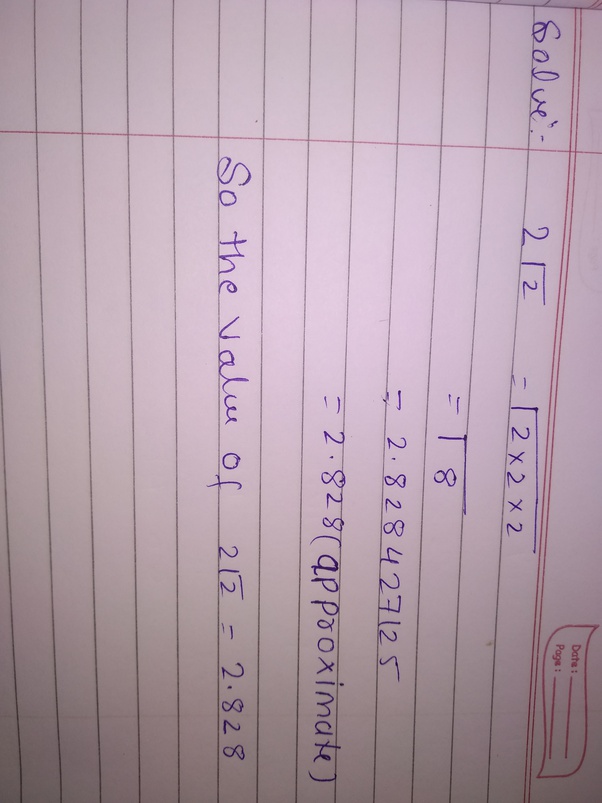 Date:
Page:
Solve:- 2√2 = √2×2×2
= √8
= 2.828427125
= 2.828 (approximate)
So the value of 2√2 = 2.828